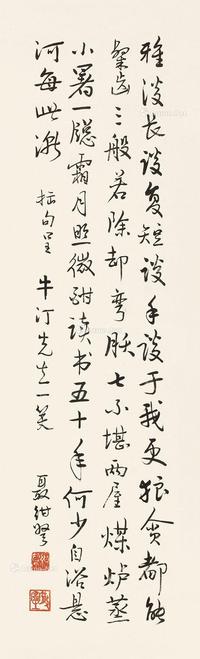 雅谈长谈复短谈手谈于我更狼贪都能
粲齿三般若除却弯肱七不堪两屋煤炉蒸
小暑一牕霜月照微酣读书五十年何少自浴悬
河每此 拙句呈 牛汀先生一笑
聂绀弩